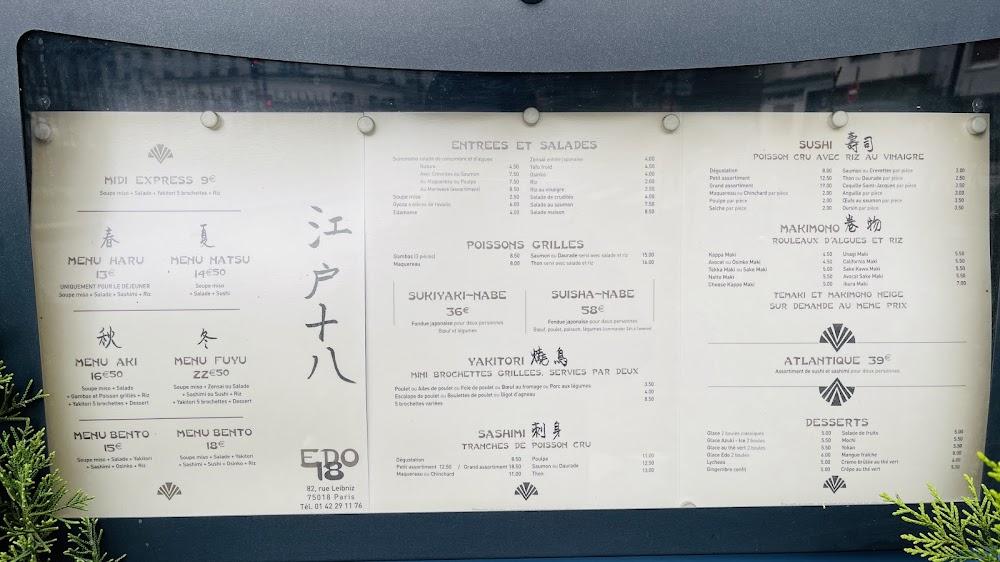 MIDI EXPRESS 9€
Soupe miso + Salade + Yakitori 5 brochettes + Riz
春
MENU HARU
13€
UNIQUEMENT POUR LE DEJEUNER
Soupe miso + Salade + Sashimi + Riz
夏
MENU NATSU
14€50
Soupe miso
+ Salade + Sushi
秋
MENU AKI
16€50
Soupe miso + Salade
+ Gambas et Poisson grillés + Riz
+ Yakitori 5 brochettes + Dessert
冬
MENU FUYU
22€50
Soupe miso + Zensai ou Salade
+ Sashimi ou Sushi + Riz
+ Yakitori 5 brochettes + Dessert
MENU BENTO
15€
Soupe miso + Salade + Yakitori
+ Sashimi + Osinko + Riz
MENU BENTO
18€
Soupe miso + Salade + Yakitori
+ Sashimi + Sushi + Osinko + Riz
江戸十八
EDO
18
82, rue Leibniz
75018 Paris
Tél. 01 42 29 11 76
ENTREES ET SALADES
Sunomono salade de concombre et d'algues
Nature 4.50
Avec Crevettes ou Saumon 7.50
Ou Maquereau ou Poulpe 7.50
Ou Moriwase (assortiment) 8.50
Soupe miso 2.50
Gyoza 4 pièces de raviolis 6.00
Edamame 4.00
Zensai entrée japonaise 4.00
Yafo froid 4.50
Osinko 4.00
Riz 2.00
Riz au vinaigre 2.50
Salade de crudités 4.00
Salade au saumon 7.50
Salade maison 8.50
POISSONS GRILLES
Gambas (3 pièces) 8.50
Maquereau 8.00
Saumon ou Daurade servi avec salade et riz 15.00
Thon servi avec salade et riz 16.00
SUKIYAKI-NABE
36€
Fondue japonaise pour deux personnes
Bœuf et légumes
SUISHA-NABE
58€
Fondue japonaise pour deux personnes
Bœuf, poulet, poisson, légumes (commander 24h à l'avance)
YAKITORI 燒鳥
MINI BROCHETTES GRILLEES, SERVIES PAR DEUX
Poulet ou Ailes de poulet ou Foie de poulet ou Bœuf au fromage ou Porc aux légumes 3.50
Escalope de poulet ou Boulettes de poulet ou Gigot d'agneau 4.00
5 brochettes variées 8.50
SASHIMI 刺身
TRANCHES DE POISSON CRU
Dégustation 8.50
Petit assortiment 12.50 / Grand assortiment 18.50
Maquereau ou Chinchard 11.00
Poulpe 11.00
Saumon ou Daurade 12.50
Thon 13.00
SUSHI 壽司
POISSON CRU AVEC RIZ AU VINAIGRE
Dégustation 8.00
Petit assortiment 12.50
Grand assortiment 19.00
Maquereau ou Chinchard par pièce 2.00
Poulpe par pièce 2.00
Seiche par pièce 2.00
Saumon ou Crevettes par pièce 2.00
Thon ou Daurade par pièce 2.50
Coquille Saint-Jacques par pièce 3.50
Anguille par pièce 3.00
Œufs au saumon par pièce 3.50
Oursin par pièce 3.50
MAKIMONO 卷物
ROULEAUX D'ALGUES ET RIZ
Kappa Maki 4.00
Avocat ou Osinko Maki 4.50
Tekka Maki ou Sake Maki 5.00
Natto Maki 5.00
Cheese Kappa Maki 5.00
Unagi Maki 5.50
California Maki 5.50
Sake Kawa Maki 5.00
Avocat Sake Maki 5.50
Ikura Maki 7.00
TEMAKI ET MAKIMONO NEIGE
SUR DEMANDE AU MEME PRIX
ATLANTIQUE 39€
Assortiment de sushi et sashimi pour deux personnes
DESSERTS
Glace 2 boules classiques 5.00
Glace Azuki - Ice 2 boules 5.50
Glace au thé vert 2 boules 5.50
Glace Edo 2 boules 6.00
Lychees 5.00
Gingembre confit 5.00
Salade de fruits 5.00
Mochi 5.50
Yokan 5.50
Mangue fraîche 8.00
Crème brûlée au thé vert 6.00
Crêpe au thé vert 5.50